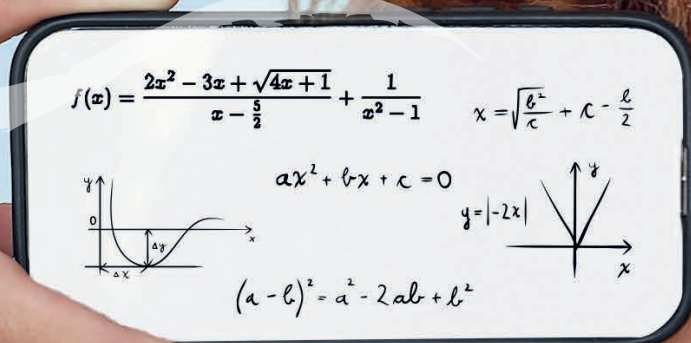 f(x) = \frac{2x^2 - 3x + \sqrt{4x + 1}}{x - \frac{5}{2}} + \frac{1}{x^2 - 1}
x = \sqrt{\frac{b^2}{c}} + c - \frac{b}{2}
ax^2 + bx + c = 0
y
0
Δy
x
Δx
y = |-2x|
y
x
(a - b)^2 = a^2 - 2ab + b^2